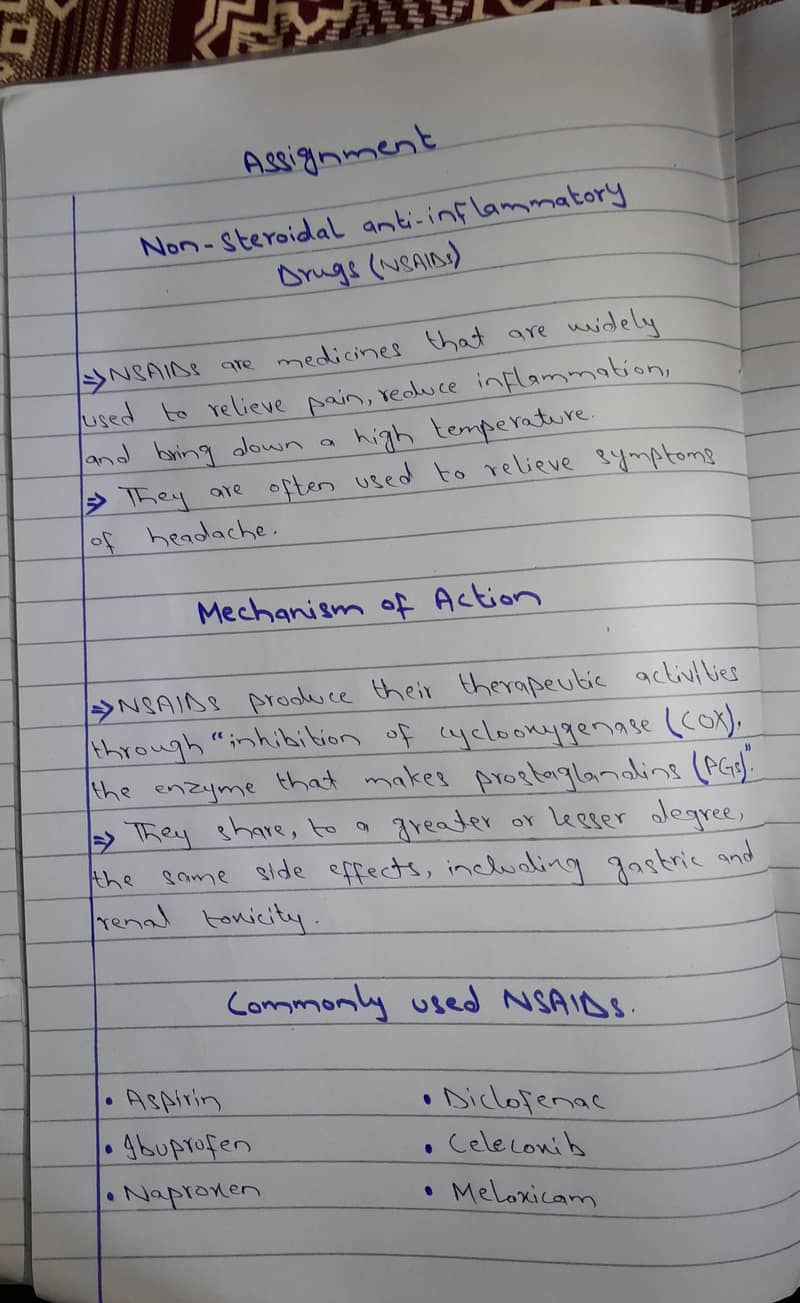 Assignment
Non-Steroidal anti-inflammatory
Drugs (NSAIDs)
⇒ NSAIDs are medicines that are widely
used to relieve pain, reduce inflammation,
and bring down a high temperature.
⇒ They are often used to relieve symptoms
of headache.
Mechanism of Action
⇒ NSAIDs produce their therapeutic activities
through "inhibition of cyclooxygenase (COX),
the enzyme that makes prostaglandins (PGs)".
⇒ They share, to a greater or lesser degree,
the same side effects, including gastric and
renal toxicity.
Commonly used NSAIDs.
• Aspirin • Diclofenac
• Ibuprofen • Celecoxib
• Naproxen • Meloxicam